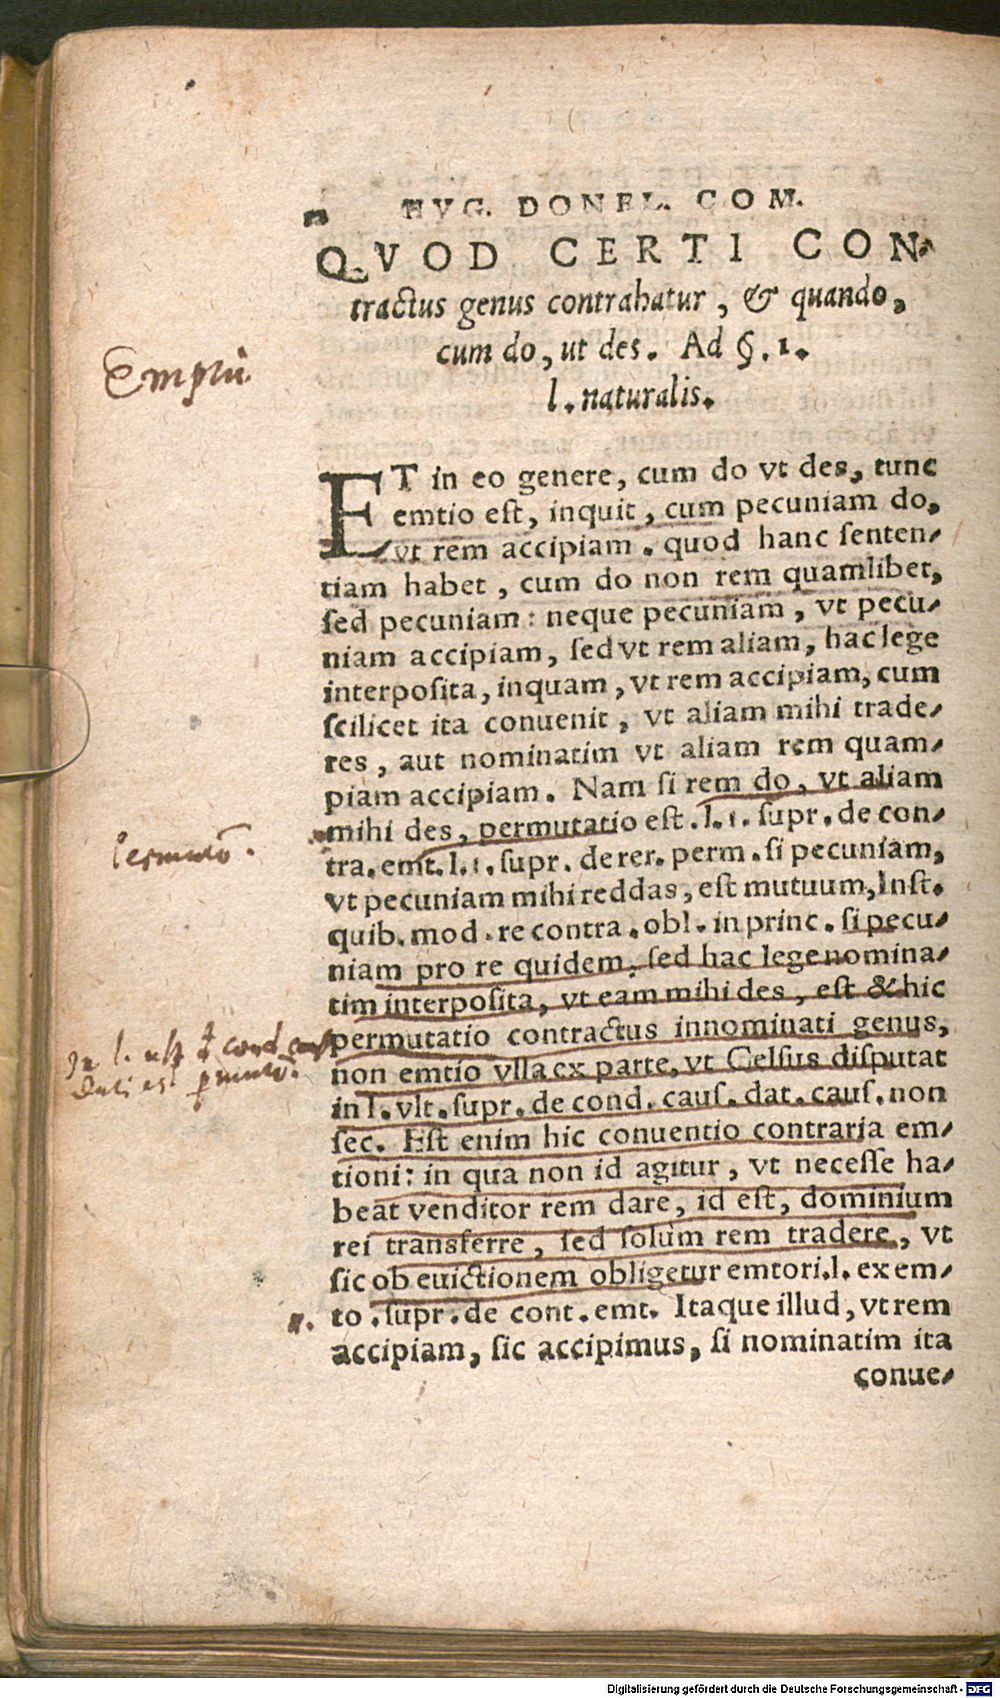 HVG. DONEL. COM.
QVOD CERTI CON-
tractus genus contrahatur, & quando,
cum do, ut des. Ad §. 1.
l. naturalis.
ET in eo genere, cum do vt des, tunc
emtio est, inquit, cum pecuniam do,
vt rem accipiam. quod hanc senten-
tiam habet, cum do non rem quamlibet,
sed pecuniam: neque pecuniam, vt pecu-
niam accipiam, sed vt rem aliam, hac lege
interposita, inquam, vt rem accipiam, cum
scilicet ita conuenit, vt aliam mihi trade-
res, aut nominatim vt aliam rem quam-
piam accipiam. Nam si rem do, vt aliam
mihi des, permutatio est. l. 1. supr. de con-
tra. emt. l. 1. supr. de rer. perm. si pecuniam,
vt pecuniam mihi reddas, est mutuum, Inst.
quib. mod. re contra. obl. in princ. si pecu-
niam pro re quidem, sed hac lege nomina-
tim interposita, vt eam mihi des, est & hic
permutatio contractus innominati genus,
non emtio vlla ex parte, vt Celsus disputat
in l. vlt. supr. de cond. caus. dat. caus. non
sec. Est enim hic conuentio contraria em-
tioni: in qua non id agitur, vt necesse ha-
beat venditor rem dare, id est, dominium
rei transferre, sed solùm rem tradere, vt
sic ob euictionem obligetur emtori. l. ex em-
to. supr. de cont. emt. Itaque illud, vt rem
accipiam, sic accipimus, si nominatim ita
conue-
Digitalisierung gefördert durch die Deutsche Forschungsgemeinschaft - DFG